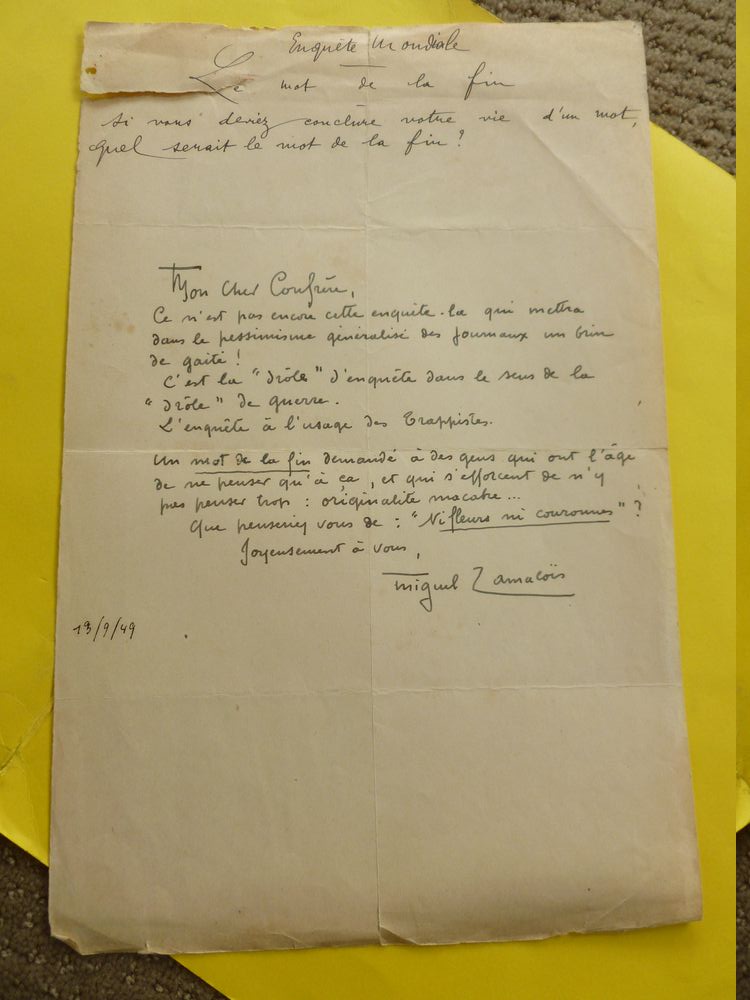 Enquête Mondiale
Le mot de la fin
Si vous deviez conclure votre vie d'un mot,
quel serait le mot de la fin ?
Mon cher Confrère,
Ce n'est pas encore cette enquête-là qui mettra
dans le pessimisme généralisé des journaux un brin
de gaité !
C'est la "drôle" d'enquête dans le sens de la
"drôle" de guerre.
L'enquête à l'usage des Trappistes.
Un mot de la fin demandé à des gens qui ont l'âge
de ne penser qu'à ça, et qui s'efforcent de n'y
pas penser trop : originalité macabre...
Que penseriez vous de : "Ni fleurs ni couronnes" ?
Joyeusement à vous,
Miguel Zamacoïs
13/9/49